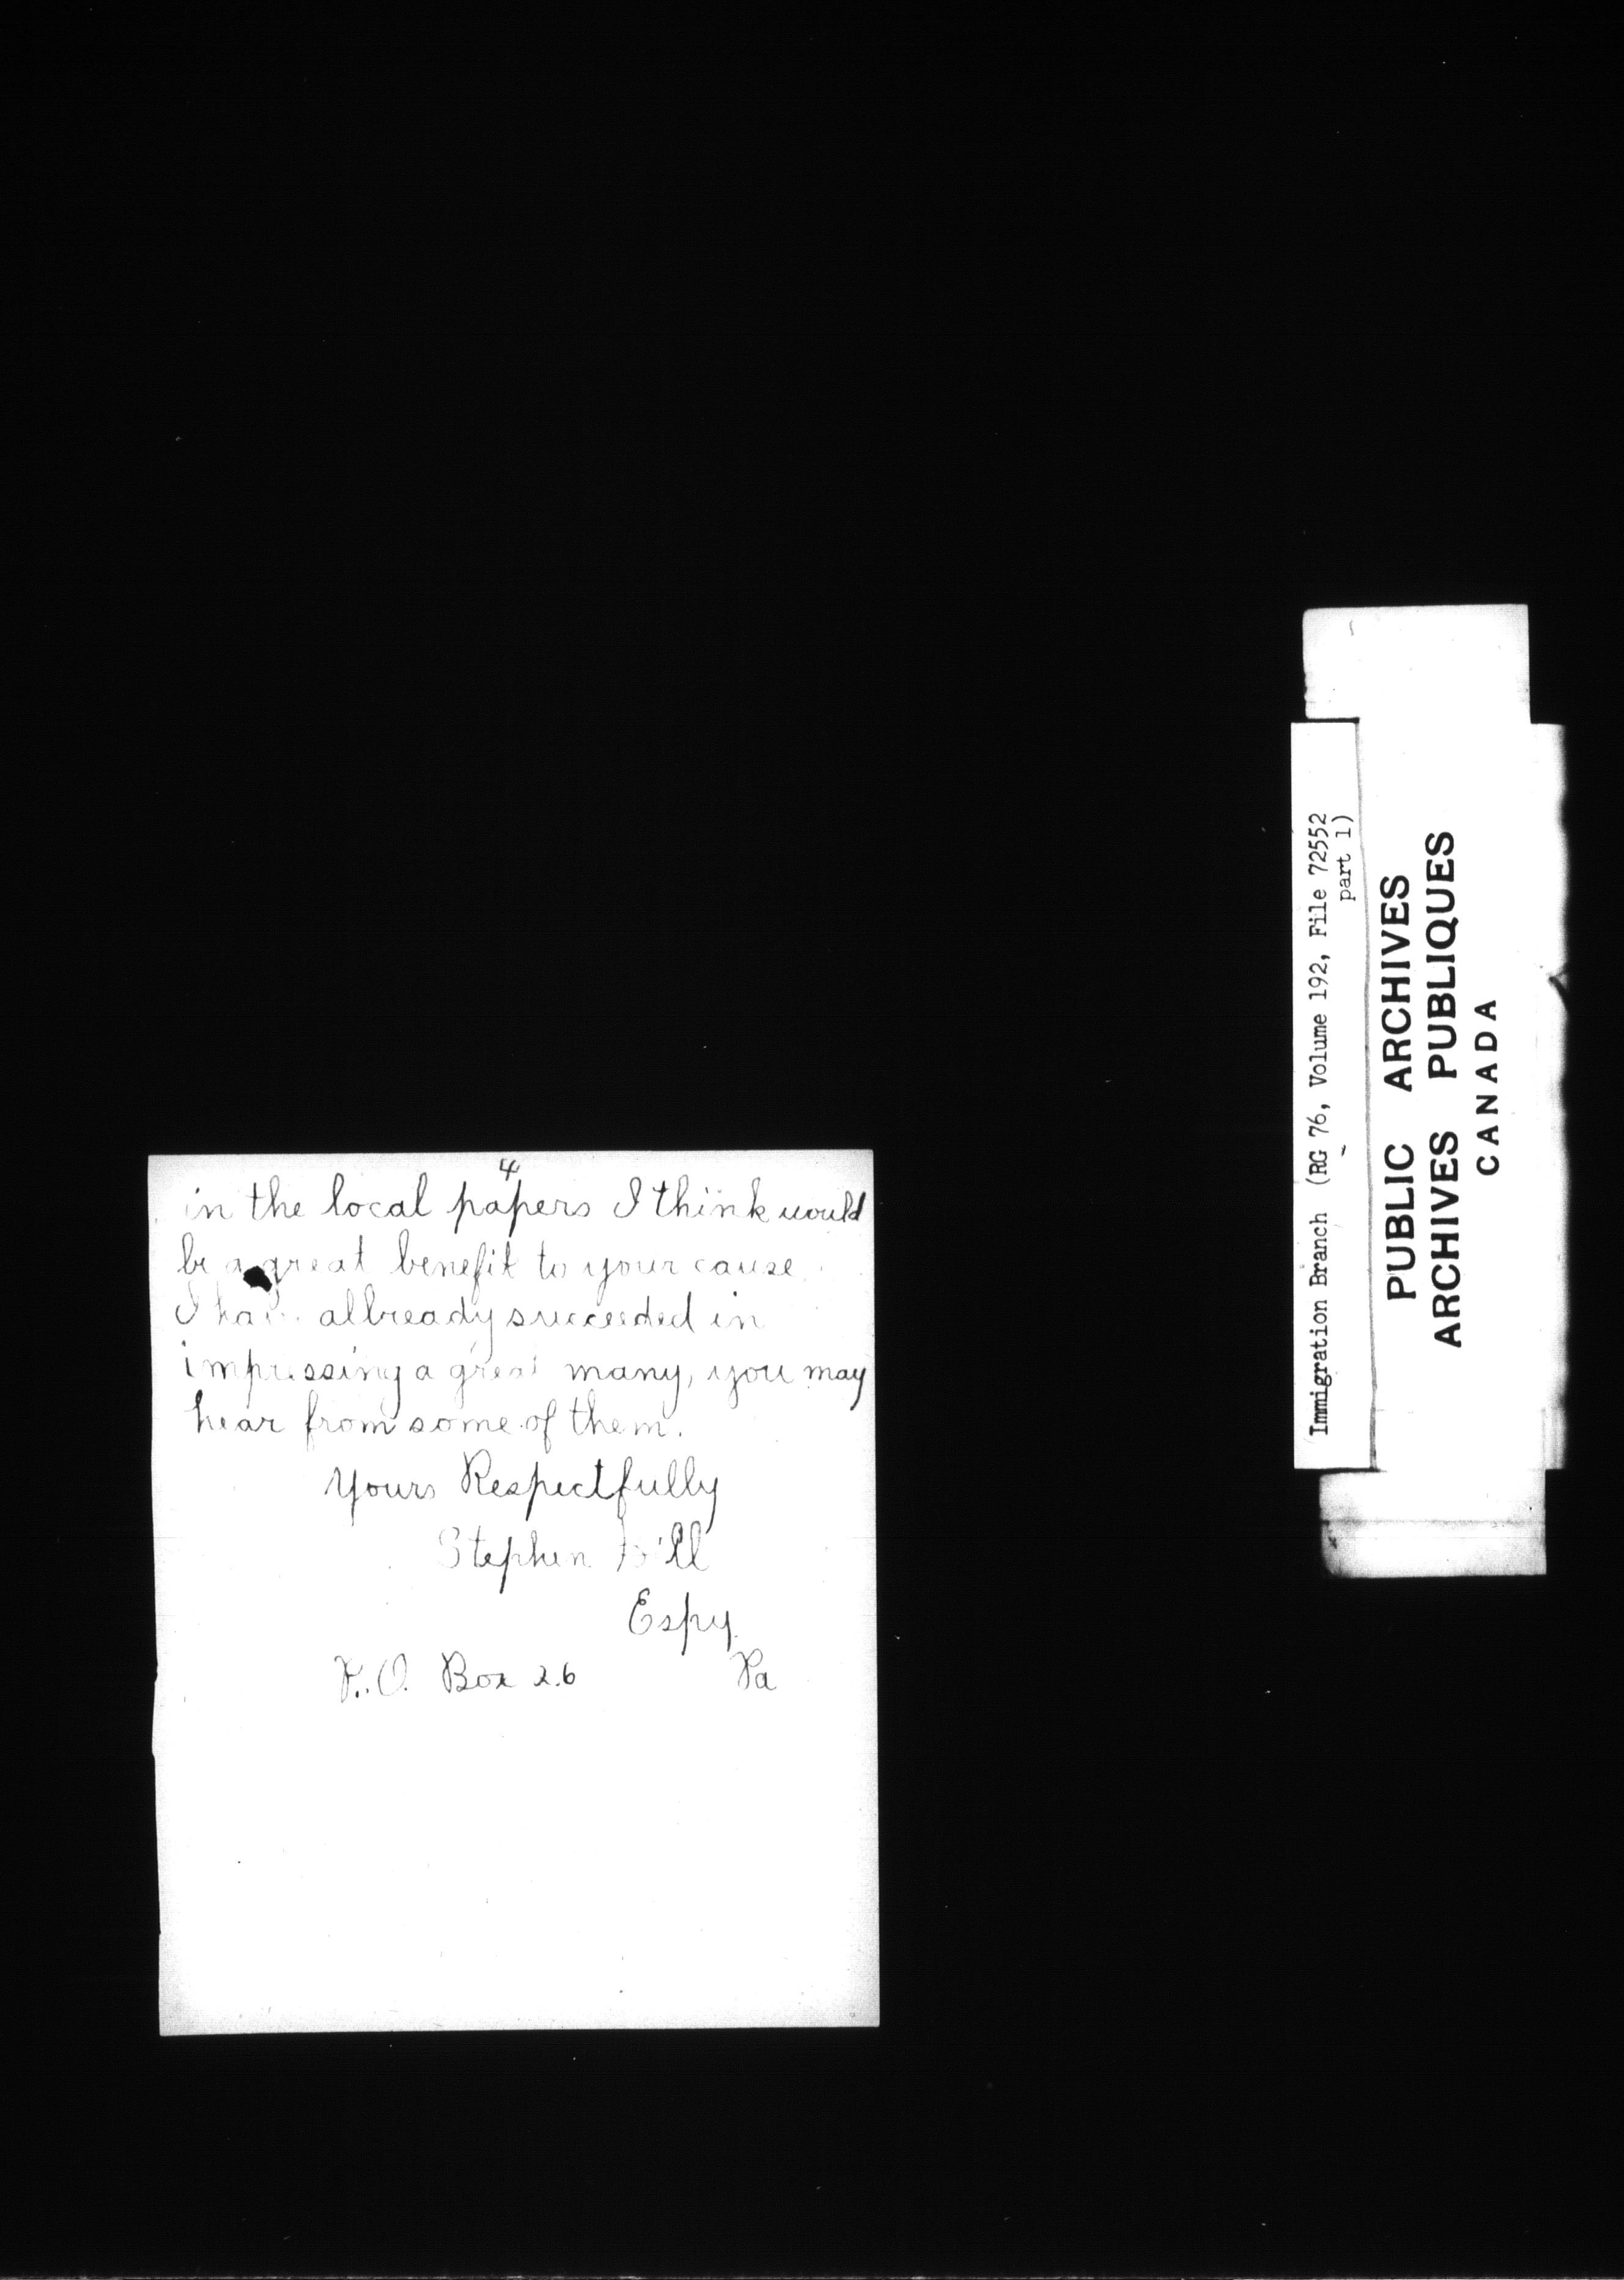 4
in the local papers I think would
be a great benefit to your cause
I have allready succeeded in
impressing a great many, you may
hear from some of them.
Yours Respectfully
Stephen
Espy
P.O. Box 26 Pa
Immigration Branch (RG 76, Volume 192, File 72552
part 1)
PUBLIC ARCHIVES
ARCHIVES PUBLIQUES
CANADA